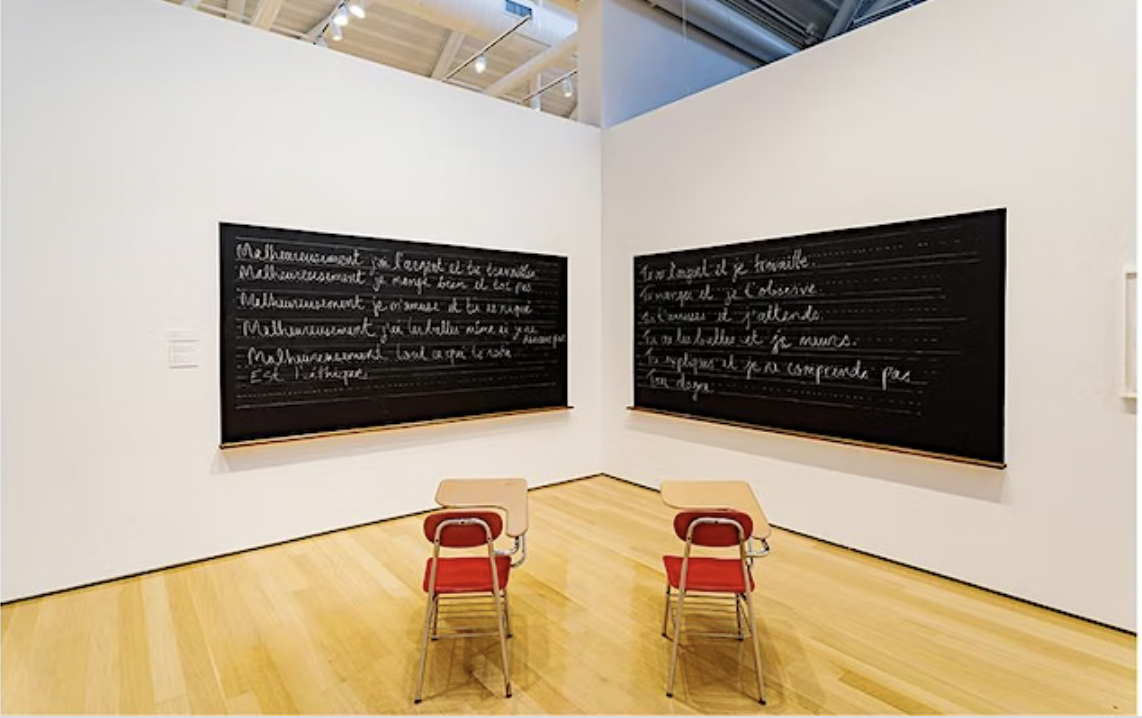 Malheureusement j'ai l'argent et tu travailles
Malheureusement je mange bien et toi pas
Malheureusement je m'amuse et tu
Malheureusement j'ai les balles même si je ne
Malheureusement tout ce qui te reste
Est l'éthique.
Tu as l'argent et je travaille.
Tu manges et je t'observe
Tu t'amuses et j'attends.
Tu as les balles et je meurs.
Tu expliques et je ne comprends pas
Ton